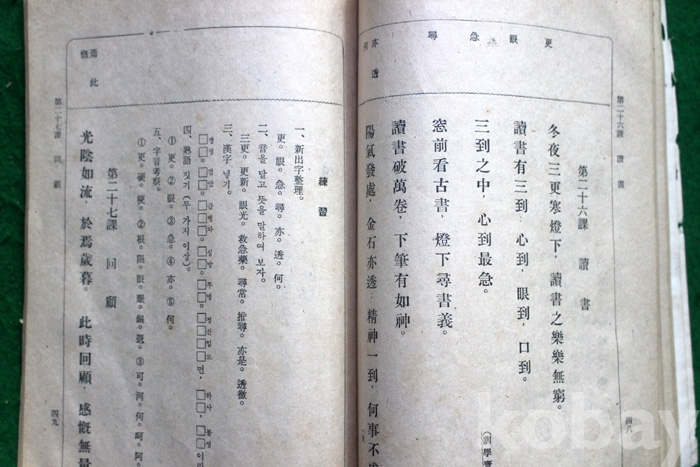 第二十六課 讀書
更 眼 急 尋
亦 透 何
第二十六課 讀書
冬夜三更寒燈下, 讀書之樂樂無窮。
讀書有三到: 心到, 眼到, 口到。
三到之中, 心到最急。
窓前看古書, 燈下尋書義。
讀書破萬卷, 下筆有如神。
陽氣發處, 金石亦透: 精神一到, 何事不
四八
焉 此
慨
第二十七課 回顧
練習
一、新出字整理。
更。眼。急。尋。亦。透。何。
二、音을 달고 뜻을 말하여 보자。
三更。更新。眼光。救急藥。尋常。推尋。亦是。透徹。
三、漢字 넣기。
四、熟語 짓기 (두 가지 이상)。
①更。②眼。③急。④亦。⑤何。
五、字音考察。
①更。硬。梗。②根。限。眼。銀。退。③可。河。何。呵。阿。
第二十七課 回顧
光陰如流, 於焉歲暮。此時回顧, 感慨無量
四九
kobay